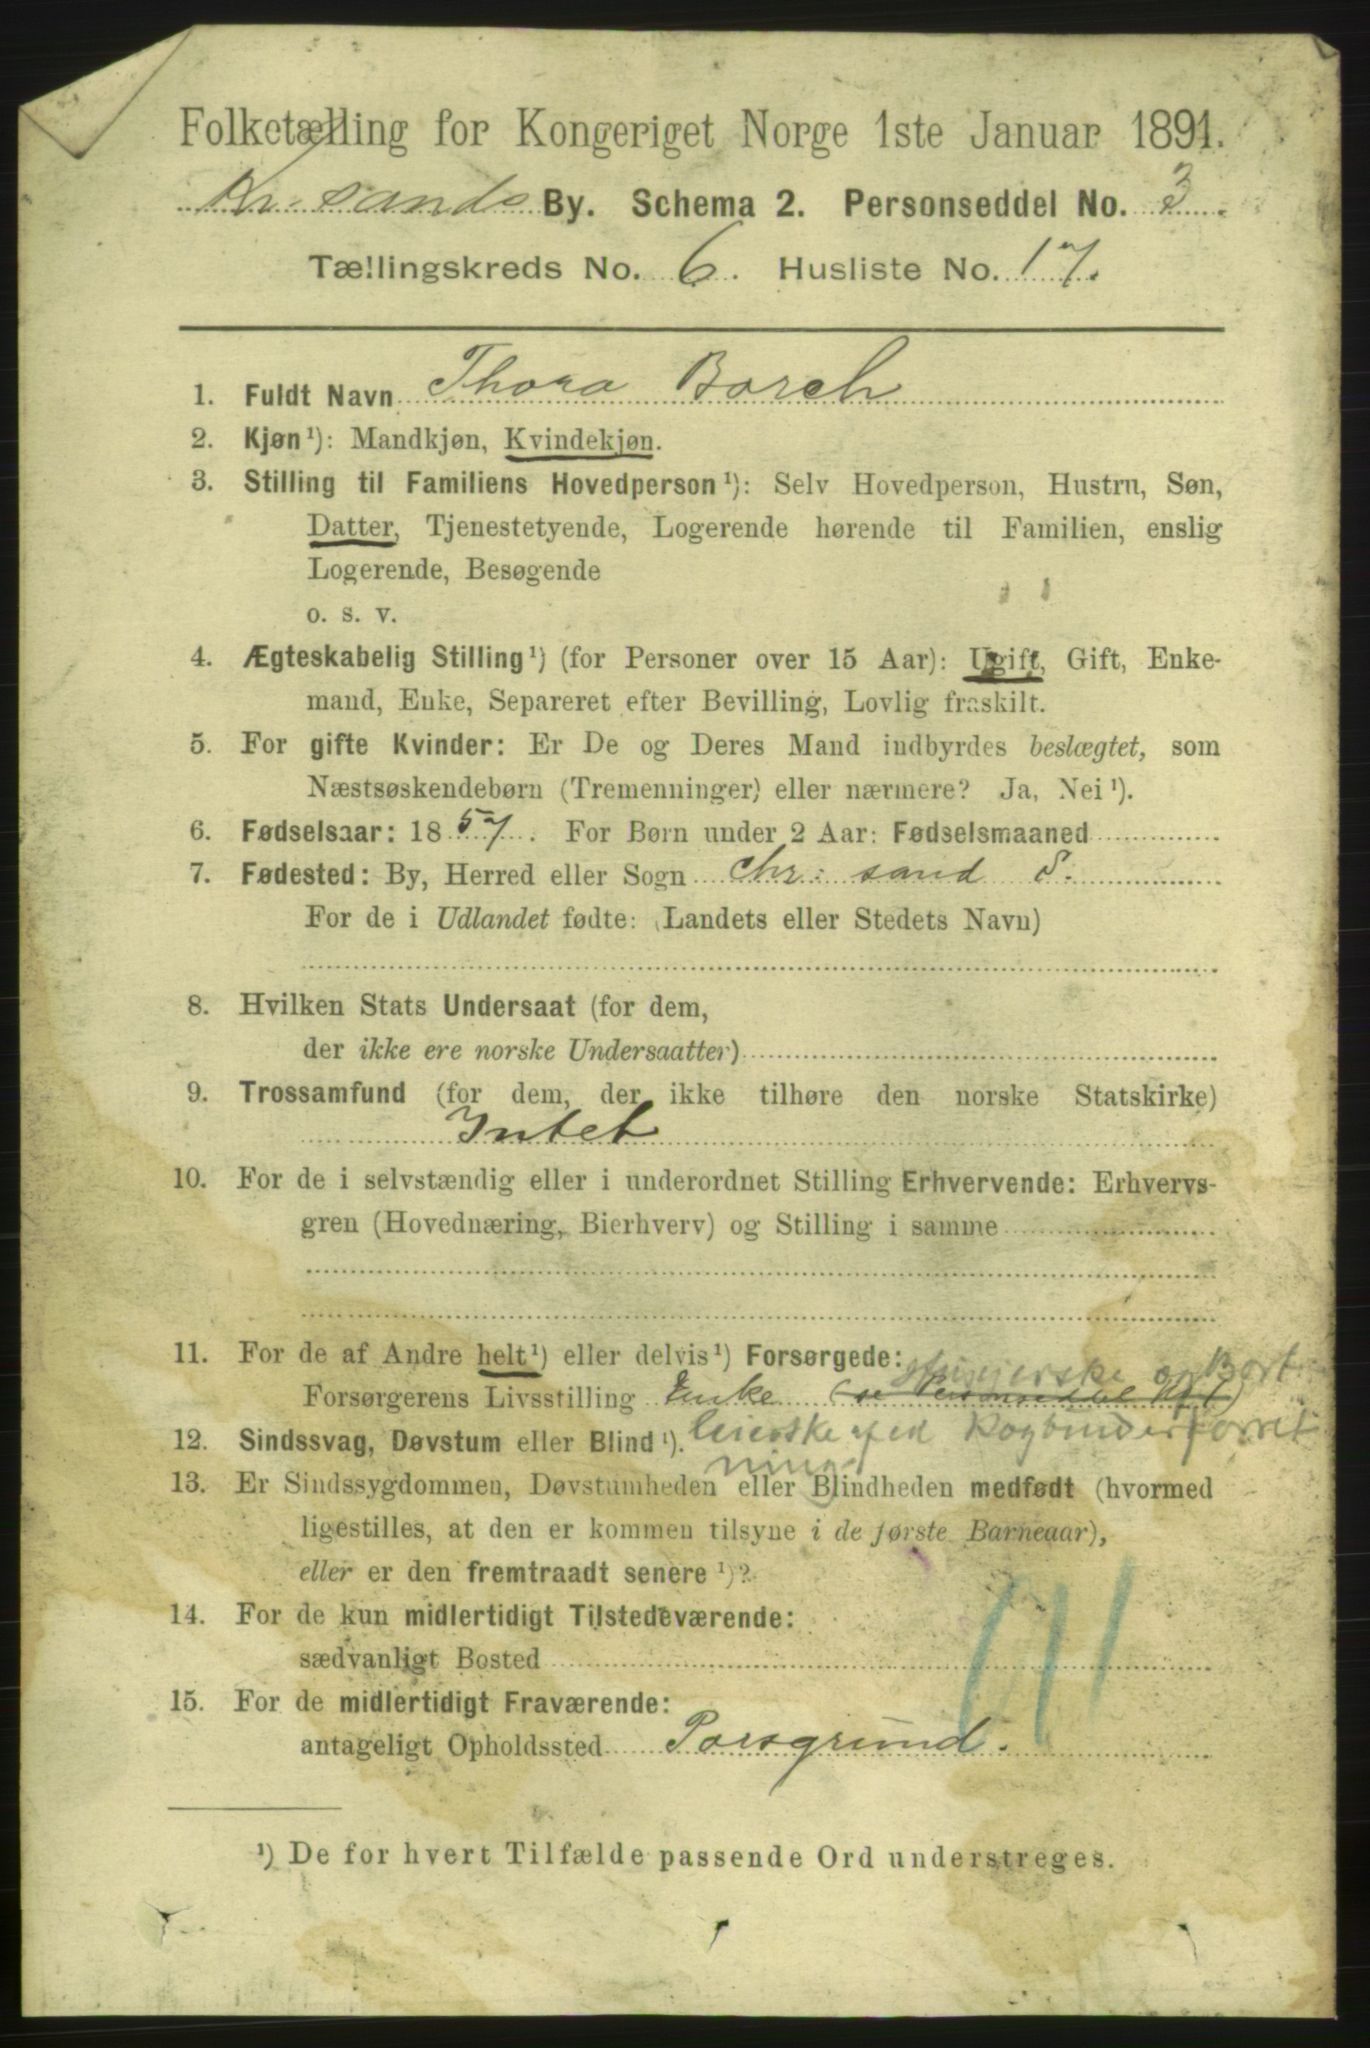 Folketælling for Kongeriget Norge 1ste Januar 1891.
Kr. sands By. Schema 2. Personseddel No. 3.
Tællingskreds No. 6. Husliste No. 17.
1. Fuldt Navn Thora Borch
2. Kjøn¹): Mandkjøn, Kvindekjøn.
3. Stilling til Familiens Hovedperson¹): Selv Hovedperson, Hustru, Søn,
Datter, Tjenestetyende, Logerende hørende til Familien, enslig
Logerende, Besøgende
o. s. v.
4. Ægteskabelig Stilling¹) (for Personer over 15 Aar): Ugift, Gift, Enke-
mand, Enke, Separeret efter Bevilling, Lovlig fraskilt.
5. For gifte Kvinder: Er De og Deres Mand indbyrdes beslægtet, som
Næstsøskendebørn (Tremenninger) eller nærmere? Ja, Nei¹).
6. Fødselsaar: 1857. For Børn under 2 Aar: Fødselsmaaned
7. Fødested: By, Herred eller Sogn Chr: sand S.
For de i Udlandet fødte: (Landets eller Stedets Navn)
8. Hvilken Stats Undersaat (for dem,
der ikke ere norske Undersaatter)
9. Trossamfund (for dem, der ikke tilhøre den norske Statskirke)
Intet
10. For de i selvstændig eller i underordnet Stilling Erhvervende: Erhvervs-
gren (Hovednæring, Bierhverv) og Stilling i samme
11. For de af Andre helt¹) eller delvis¹) Forsørgede: og Bort
Forsørgerens Livsstilling Enke (se Personseddel No 1)
leierske af en Bogbinderforret
12. Sindssvag, Døvstum eller Blind¹).
ning
13. Er Sindssygdommen, Døvstumheden eller Blindheden medfødt (hvormed
ligestilles, at den er kommen tilsyne i de første Barneaar),
eller er den fremtraadt senere¹)?
14. For de kun midlertidigt Tilstedeværende:
sædvanligt Bosted
15. For de midlertidigt Fraværende:
antageligt Opholdssted Porsgrund.
¹) De for hvert Tilfælde passende Ord understreges.